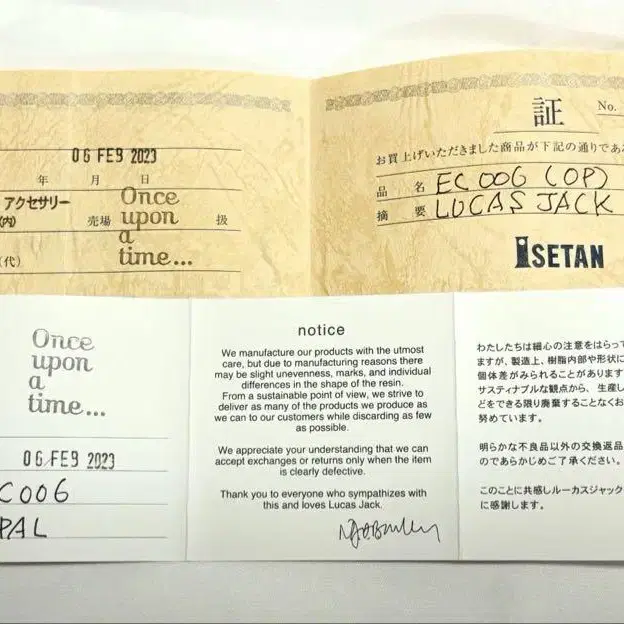 06 FEB 2023
年 月 日
アクセサリー
(内) 売場 扱
(代)
Once
upon
a
time...
証
No.
お買上げいただきました商品が下記の通りであ
品 名 EC006 (OP)
摘 要 LUCAS JACK
ISETAN
Once
upon
a
time...
06 FEB 2023
C006
PAL
notice
We manufacture our products with the utmost
care, but due to manufacturing reasons there
may be slight unevenness, marks, and individual
differences in the shape of the resin.
From a sustainable point of view, we strive to
deliver as many of the products we produce as
we can to our customers while discarding as few
as possible.
We appreciate your understanding that we can
accept exchanges or returns only when the item
is clearly defective.
Thank you to everyone who sympathizes with
this and loves Lucas Jack.
わたしたちは細心の注意をはらって
ますが、製造上、樹脂内部や形状に
個体差がみられることがあります
サスティナブルな観点から、生産し
どをできる限り廃棄することなくお
努めています。
明らかな不良品以外の交換返品
のであらかじめご了承ください。
このことに共感しルーカスジャック
に感謝します。